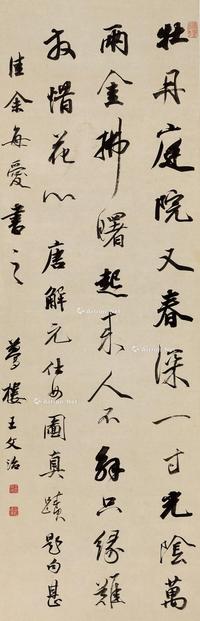 牡丹庭院又春深一寸光陰萬
兩金拂曙起來人不解只緣難
放惜花心唐解元仕女圖真蹟題句甚
佳余每愛書之 夢樓王文治